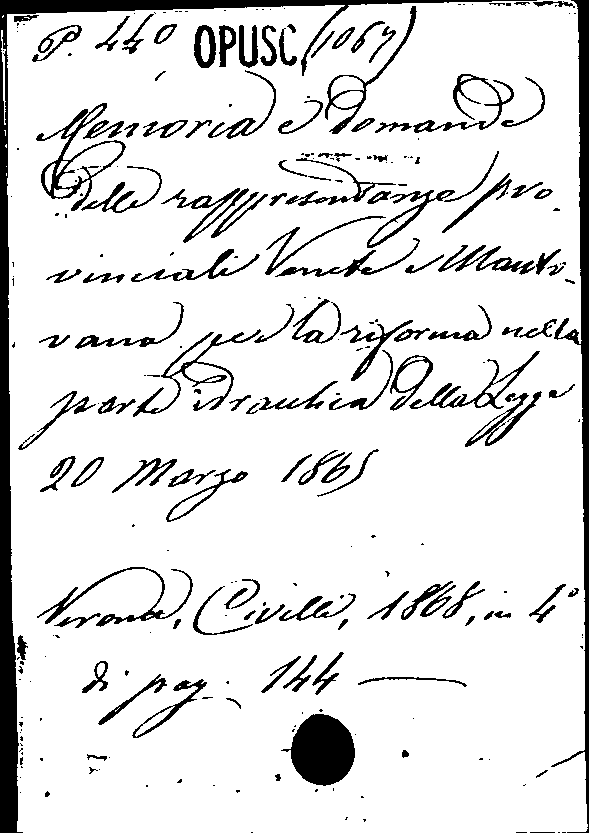 P. 440 OPUSC (1067)
Memoria e domande
delle rappresentanze pro-
vinciali Venete e Manto-
vana per la riforma nella
parte idraulica della Legge
20 Marzo 1865
Verona, Civelli, 1868, in 4°
di pag. 144 —